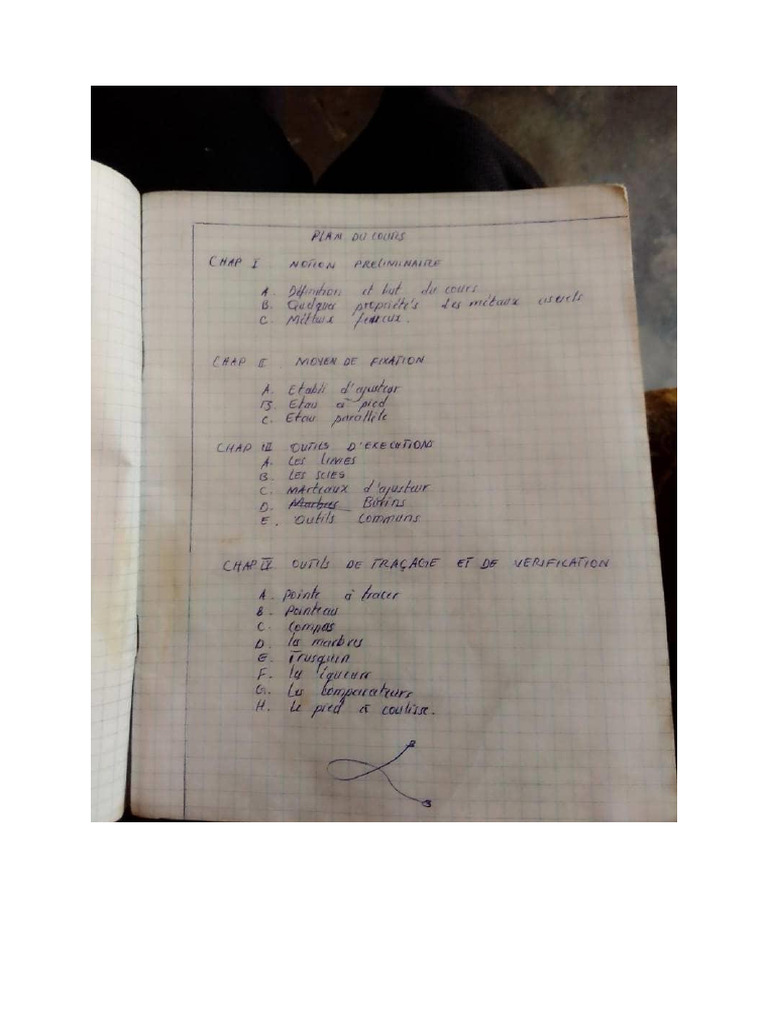 PLAN DU COURS
CHAP I NOTION PRELIMINAIRE
A. Définition et but du cours
B. Quelques propriétés des métaux usuels
C. Métaux ferreux.
CHAP II MOYEN DE FIXATION
A. Etabli d'ajusteur
B. Etau à pied
C. Etau parallèle
CHAP III OUTILS D'EXECUTIONS
A. LES LIMES
B. LES SCIES
C. MArteaux d'ajusteur
D. Marbres Burins
E. Outils Communs
CHAP IV OUTILS DE TRAÇAGE ET DE VERIFICATION
A. pointe à tracer
B. Pointeau
C. Compas
D. les marbres
E. Trusquin
F. la
G. Les comparateurs
H. Le pied à coulisse.